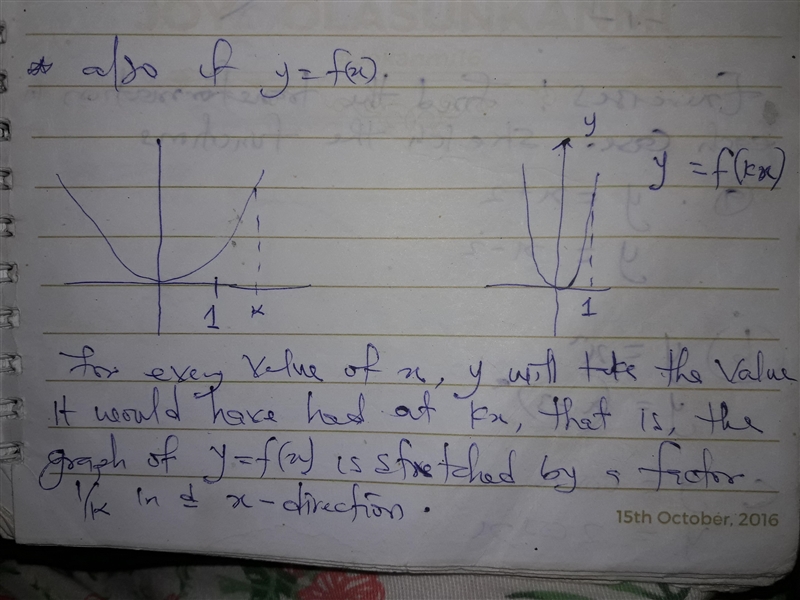 * also if y = f(x)
y
y = f(kx)
1 k
1
For every value of x, y will take the value
it would have had at kx, that is, the
graph of y=f(x) is stretched by a factor
1/k in d x-direction.
15th October, 2016